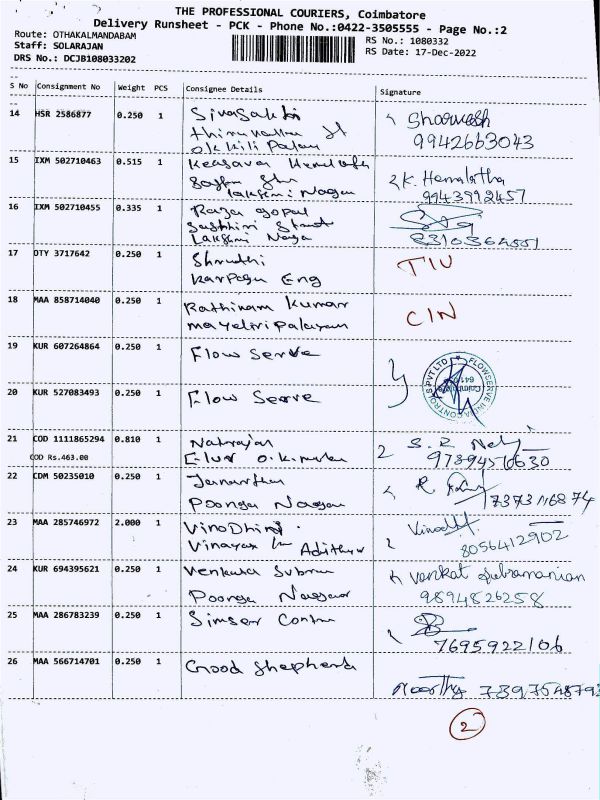 THE PROFESSIONAL COURIERS, Coimbatore
Delivery Runsheet - PCK - Phone No.:0422-3505555 - Page No.:2
Route: OTHAKALMANDABAM
Staff: SOLARAJAN
DRS No.: DCJB108033202
RS No.: 1080332
RS Date: 17-Dec-2022
S No Consignment No Weight PCS Consignee Details Signature
14 HSR 2586877 0.250 1 Sivasakthi
Okkili Palam
9942663043
15 IXM 502710463 0.515 1 Kesava
Lakshmi Nagar
K. Hemalatha
9943992457
16 IXM 502710455 0.335 1 Raja gopal
Street
17 OTY 3717642 0.250 1 Shruthi
Karpaga Eng
TIU
18 MAA 858714040 0.250 1 Rathinam Kumar
CIN
19 KUR 607264864 0.250 1 Flow Serve
20 KUR 527083493 0.250 1 Flow Serve
FLOWSERVE INDIA CONTROLS PVT LTD
21 COD 1111865294 0.810 1 Natarajan
COD Rs.463.00
22 CDM 50235010 0.250 1
Poonga Nagar
R
7373116874
23 MAA 285746972 2.000 1 VinoDhini
Vinayaka
8056412902
24 KUR 694395621 0.250 1 Venkata
Poonga Nagar
Venkat Subramanian
9894826258
25 MAA 286783239 0.250 1
7695922106
26 MAA 566714701 0.250 1 Good Shepherd
Moorthy
2